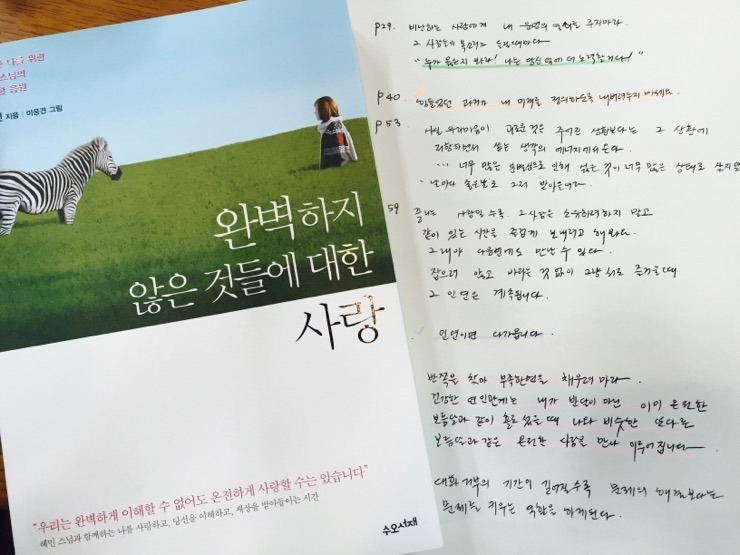 나를 위한
스님의
응원
지음 | 이응견 그림
완벽하지
않은 것들에 대한
사랑
“우리는 완벽하게 이해할 수 없어도 온전하게 사랑할 수는 있습니다”
혜민 스님과 함께하는 나를 사랑하고, 당신을 이해하고, 세상을 받아들이는 시간
수오서재
p29. 비난하는 사람에게 내 운명의 열쇠를 주지마라.
그 사람들의 목소리가 들릴때마다
"누가 옳은지 보자! 나는 당신 앞에 더 노력할거다!"
p40 힘들었던 과거가 내 미래를 정의하도록 내버려두지 마세요.
p53 사실 우리마음이 괴로운 것은 주어진 상황보다는 그 상황에
저항하면서 쓰는 생각의 에너지에서 온다.
... 너무 많은 분별심으로 인해 싫은 것이 너무 많은 상태로
날마다 좋은날로 그저 받아들여라.
59 끌리는 사람일 수록, 그사람은 소유하려하지 말고
같이 있는 시간을 즐겁게 보내려고 해봐라.
그래야 다음번에도 만날 수 있다.
잡으려 않고 바라는 것 없이 그냥 서로 즐거울때
그 인연은 계속됩니다.
인연이면 다가옵니다.
반쪽을 찾아 부족한면을 채우려 마라.
건강한 연인관계는 내가 반달이 아닌 이미 온전한
보름달과 같이 홀로 있을때 나와 비슷한 또다른
보름달과 같은 온전한 사람을 만나 이루어집니다.
대화 거부의 기간이 길어질수록 문제의 해결보다는
문제를 키우는 역할을 하게된다.